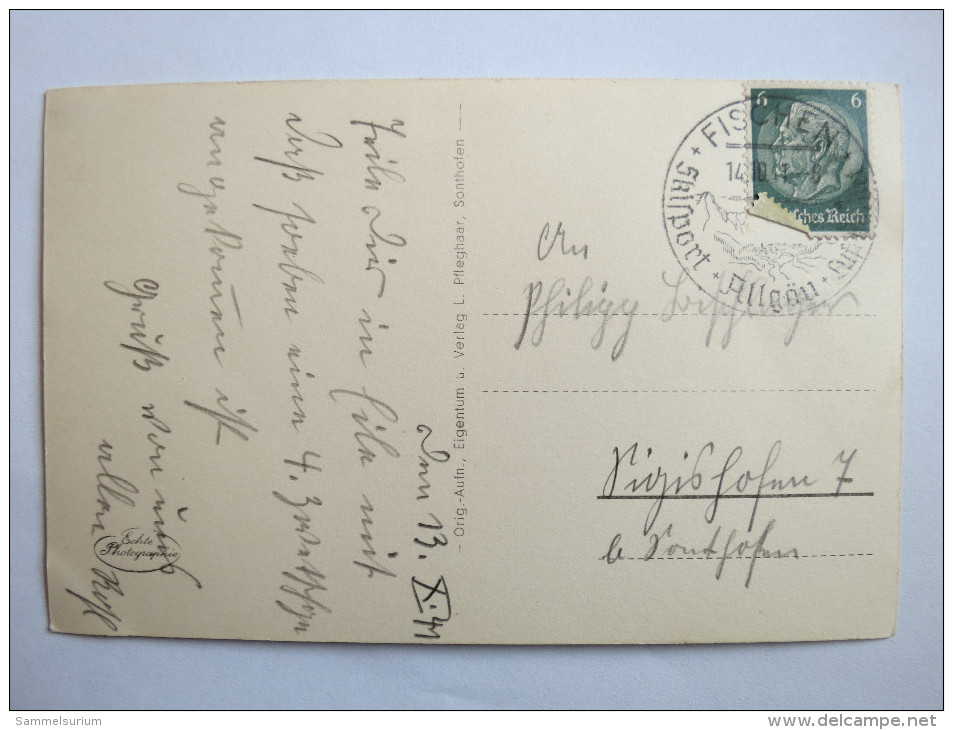 den 13. X. 41
Teile Dir in Eile mit
daß soeben ein 4.
angekommen ist
Gruß von uns
allen
Echte
Photographie
- Orig.-Aufn., Eigentum u. Verlag L. Pfleghaar, Sonthofen -
FISCHEN
14.10.41
Skisport + Allgäu +
6 6
sches Reich
An
Philipp
Sigishofen 7
b Sonthofen
Sammelsurium
http://www.delcampe.net